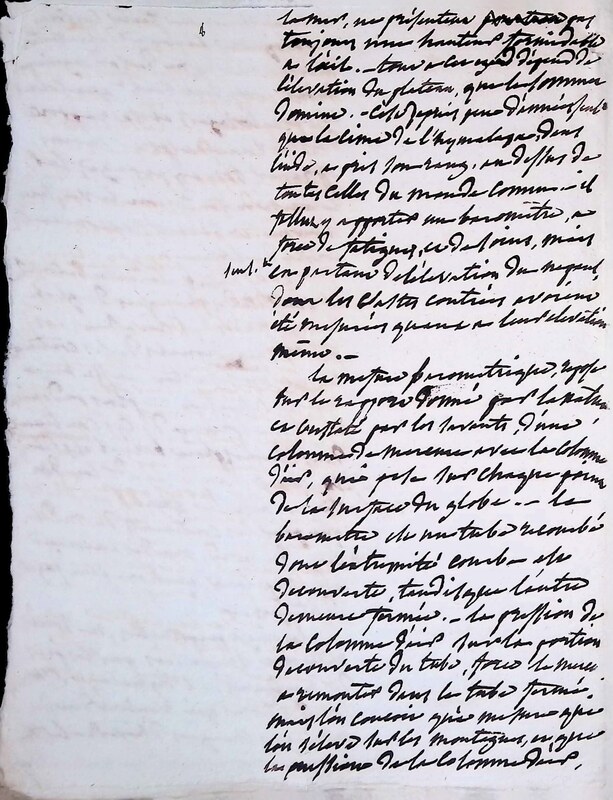 la mer, ne présentent pourtant pas
toujours une hauteur formidable
a l'œil. - tout a cet egard dépend de
l'élevation du plateau, que le sommet
domine. - C'est depuis peu d'années seul.t
que la cime de l'hymalaya dans
l'inde, a pris son rang, au dessus de
toutes celles du monde connu. - il
fallut y apporter un barometre, a
force de fatigues, et de soins, mais
en partant de l'élevation du nepaul,
dont les vastes contrées avoient
été mesurées quant a leur élevation
même. -
la mesure barometrique, repose
sur le rapport donné par la nature
et constaté par les savants, d'une
colonne de mercure avec la colonne
d'air, qui pese sur chaque point
de la surface du globe. - le
barometre est un tube recourbé
dont l'extremité courbe est
decouverte, tandis que l'autre
demeure fermée. - la pression de
la colonne d'air sur la portion
decouverte du tube, force le mercure
a remonter dans le tube fermé.
mais l'on conçoit qu'a mesure que
l'on s'éleve sur les montagnes, et que
la pression de la colonne d'air,